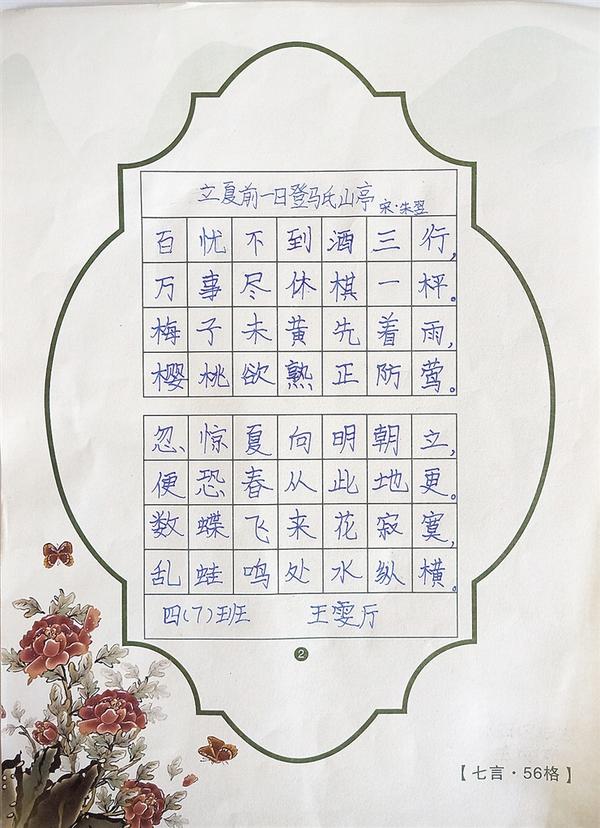 立夏前一日登马氏山亭 宋·朱翌
百忧不到酒三行,
万事尽休棋一枰。
梅子未黄先着雨,
樱桃欲熟正防莺。
忽惊夏向明朝立,
便恐春从此地更。
数蝶飞来花寂寞,
乱蛙鸣处水纵横。
四(7)班 王雯厅
2
【七言·56格】